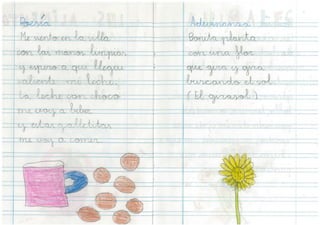 Poesía
Me siento en la silla
con las manos limpias
y espero a que llegue
caliente mi leche,
la leche con choco
me voy a beber
y estas galletitas
me voy a comer.
Adivinanzas
Bonita planta
con una flor
que gira y gira
buscando el sol.
(El girasol)